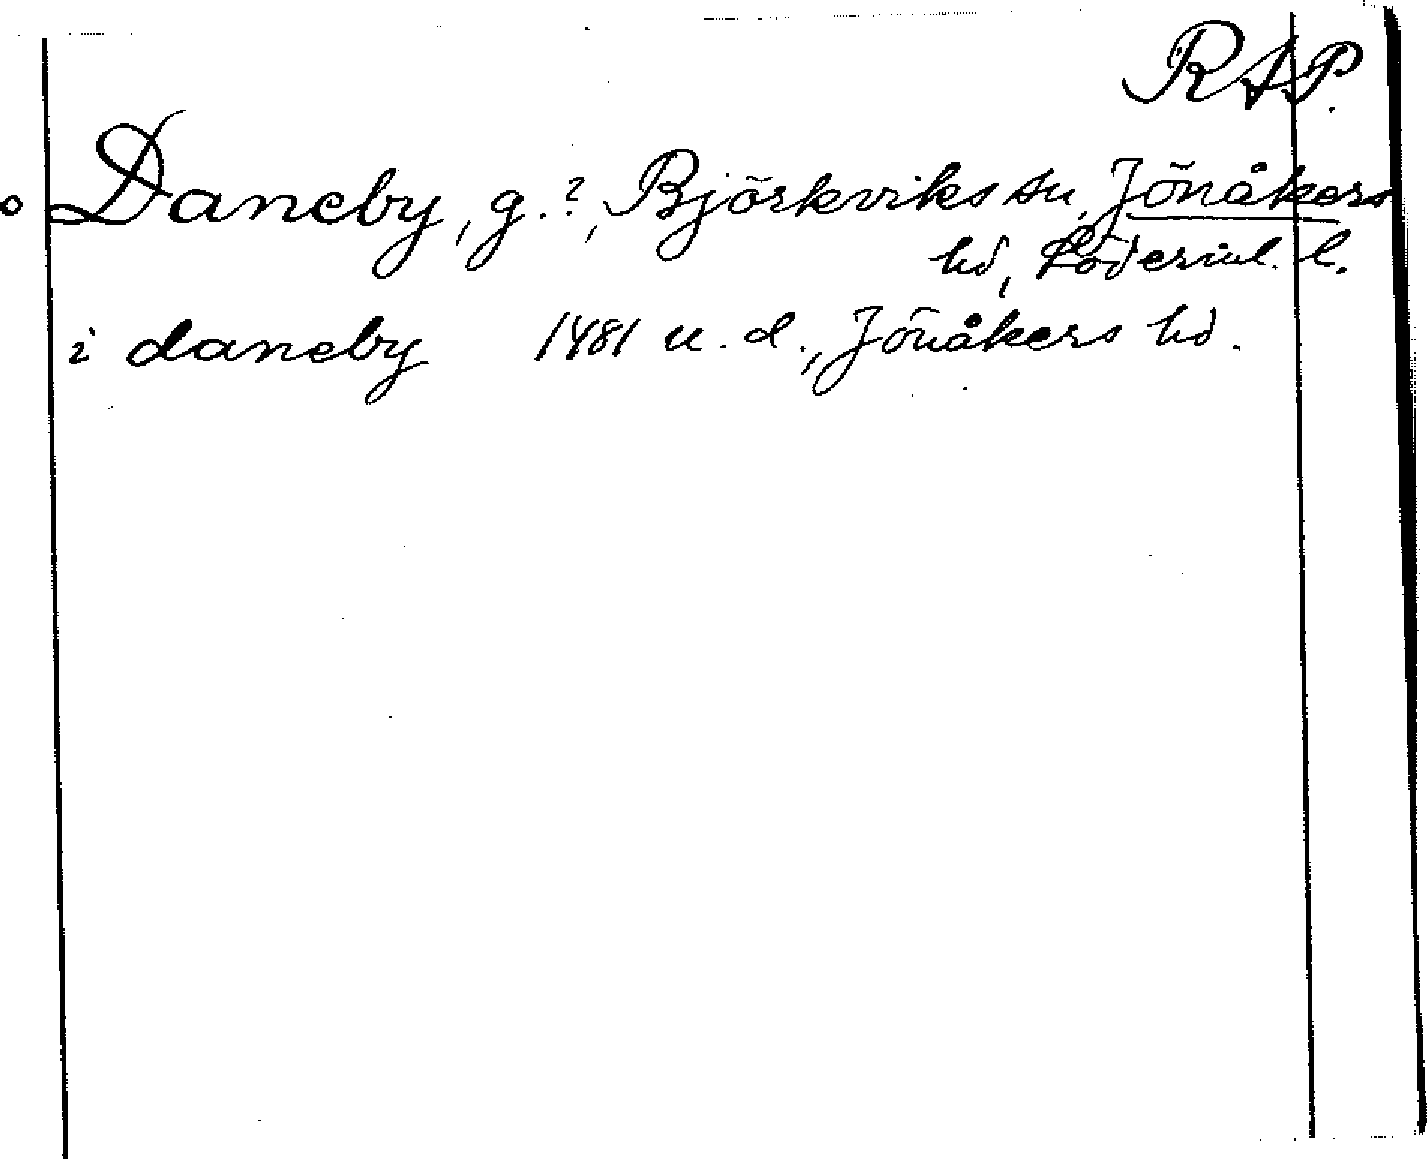 RAP.
Daneby, g.?, Björkviks sn, Jönåkers
hd, Söderml. l.
i daneby 1481 u. d., Jönåkers hd.